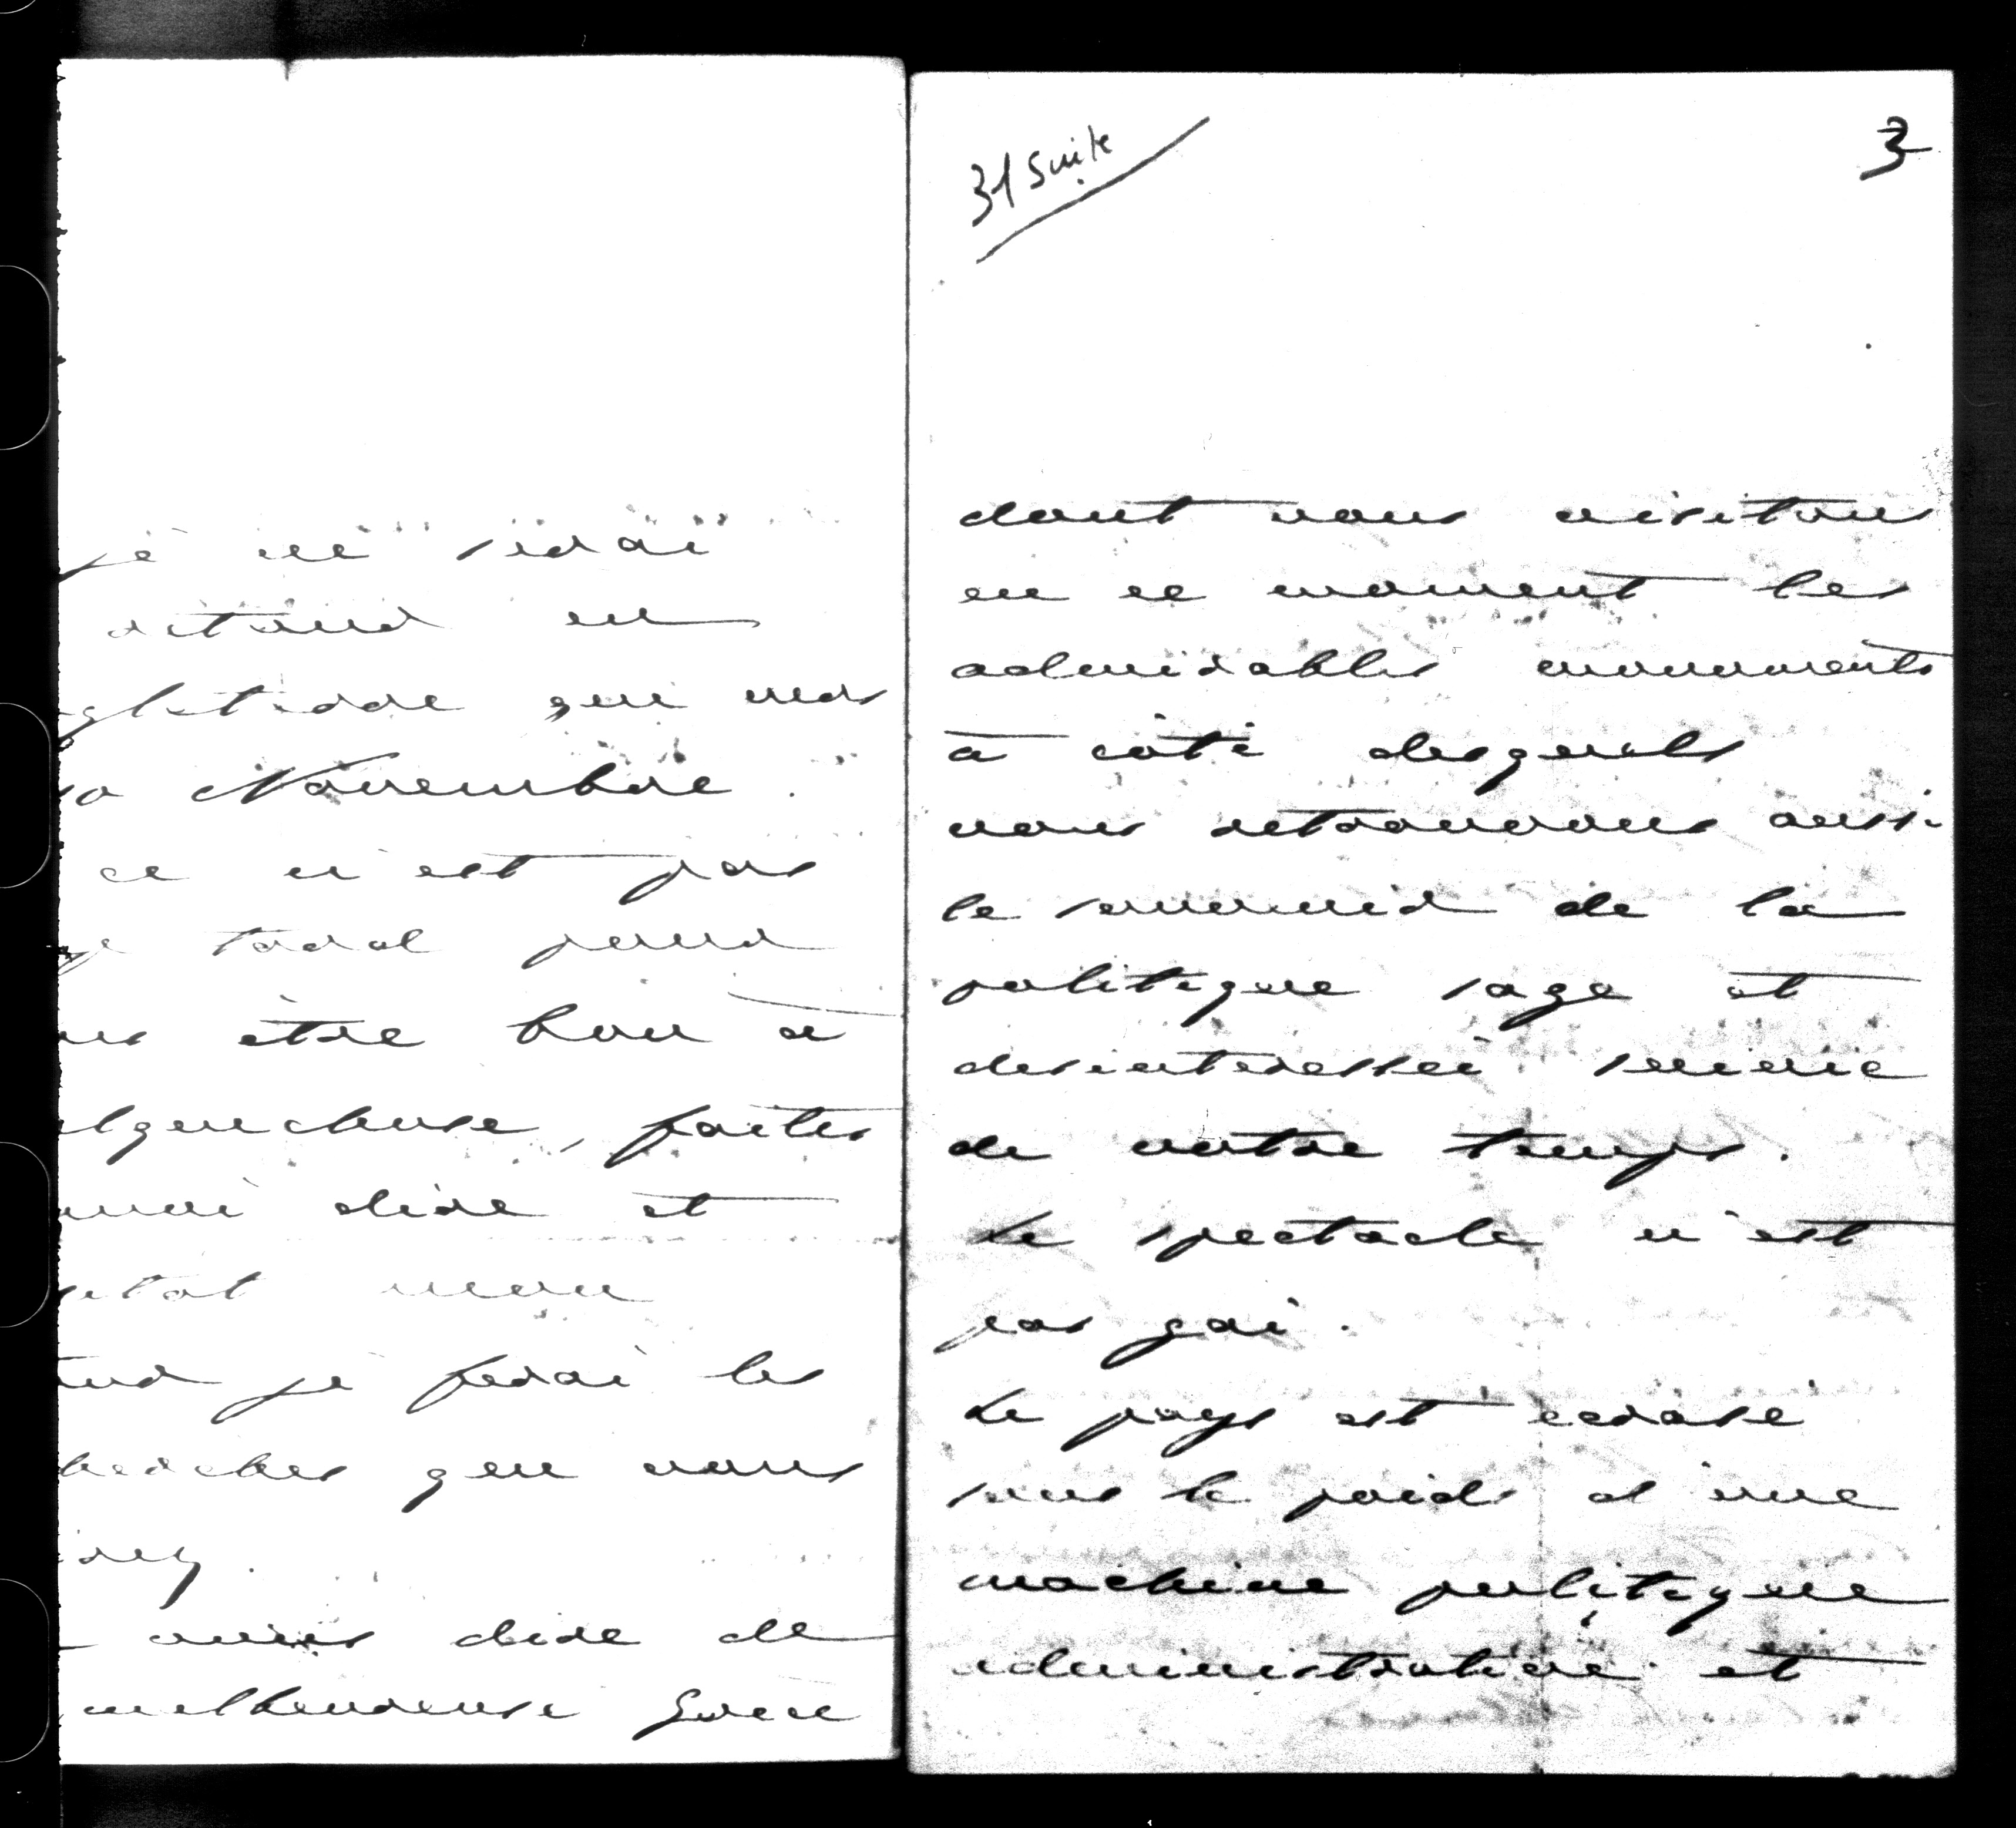 je ne serai
retour en
gleterre que vers
10 Novembre.
ce n'est pas
tard pour
us être bon à
elque chose, faites
moi dire et
mon
tour je ferai les
herches que vous
rez.
dire de
malheureuse Grèce
31 suite
3
dont nous visitons
en ce moment les
admirables monuments
à côté desquels
nous retrouvons aussi
le souvenir de la
politique sage et
desinteressée suivie
de votre temps.
Le spectacle n'est
pas gai.
Le pays est ecrasé
sous le poids d'une
machine politique
administrative et